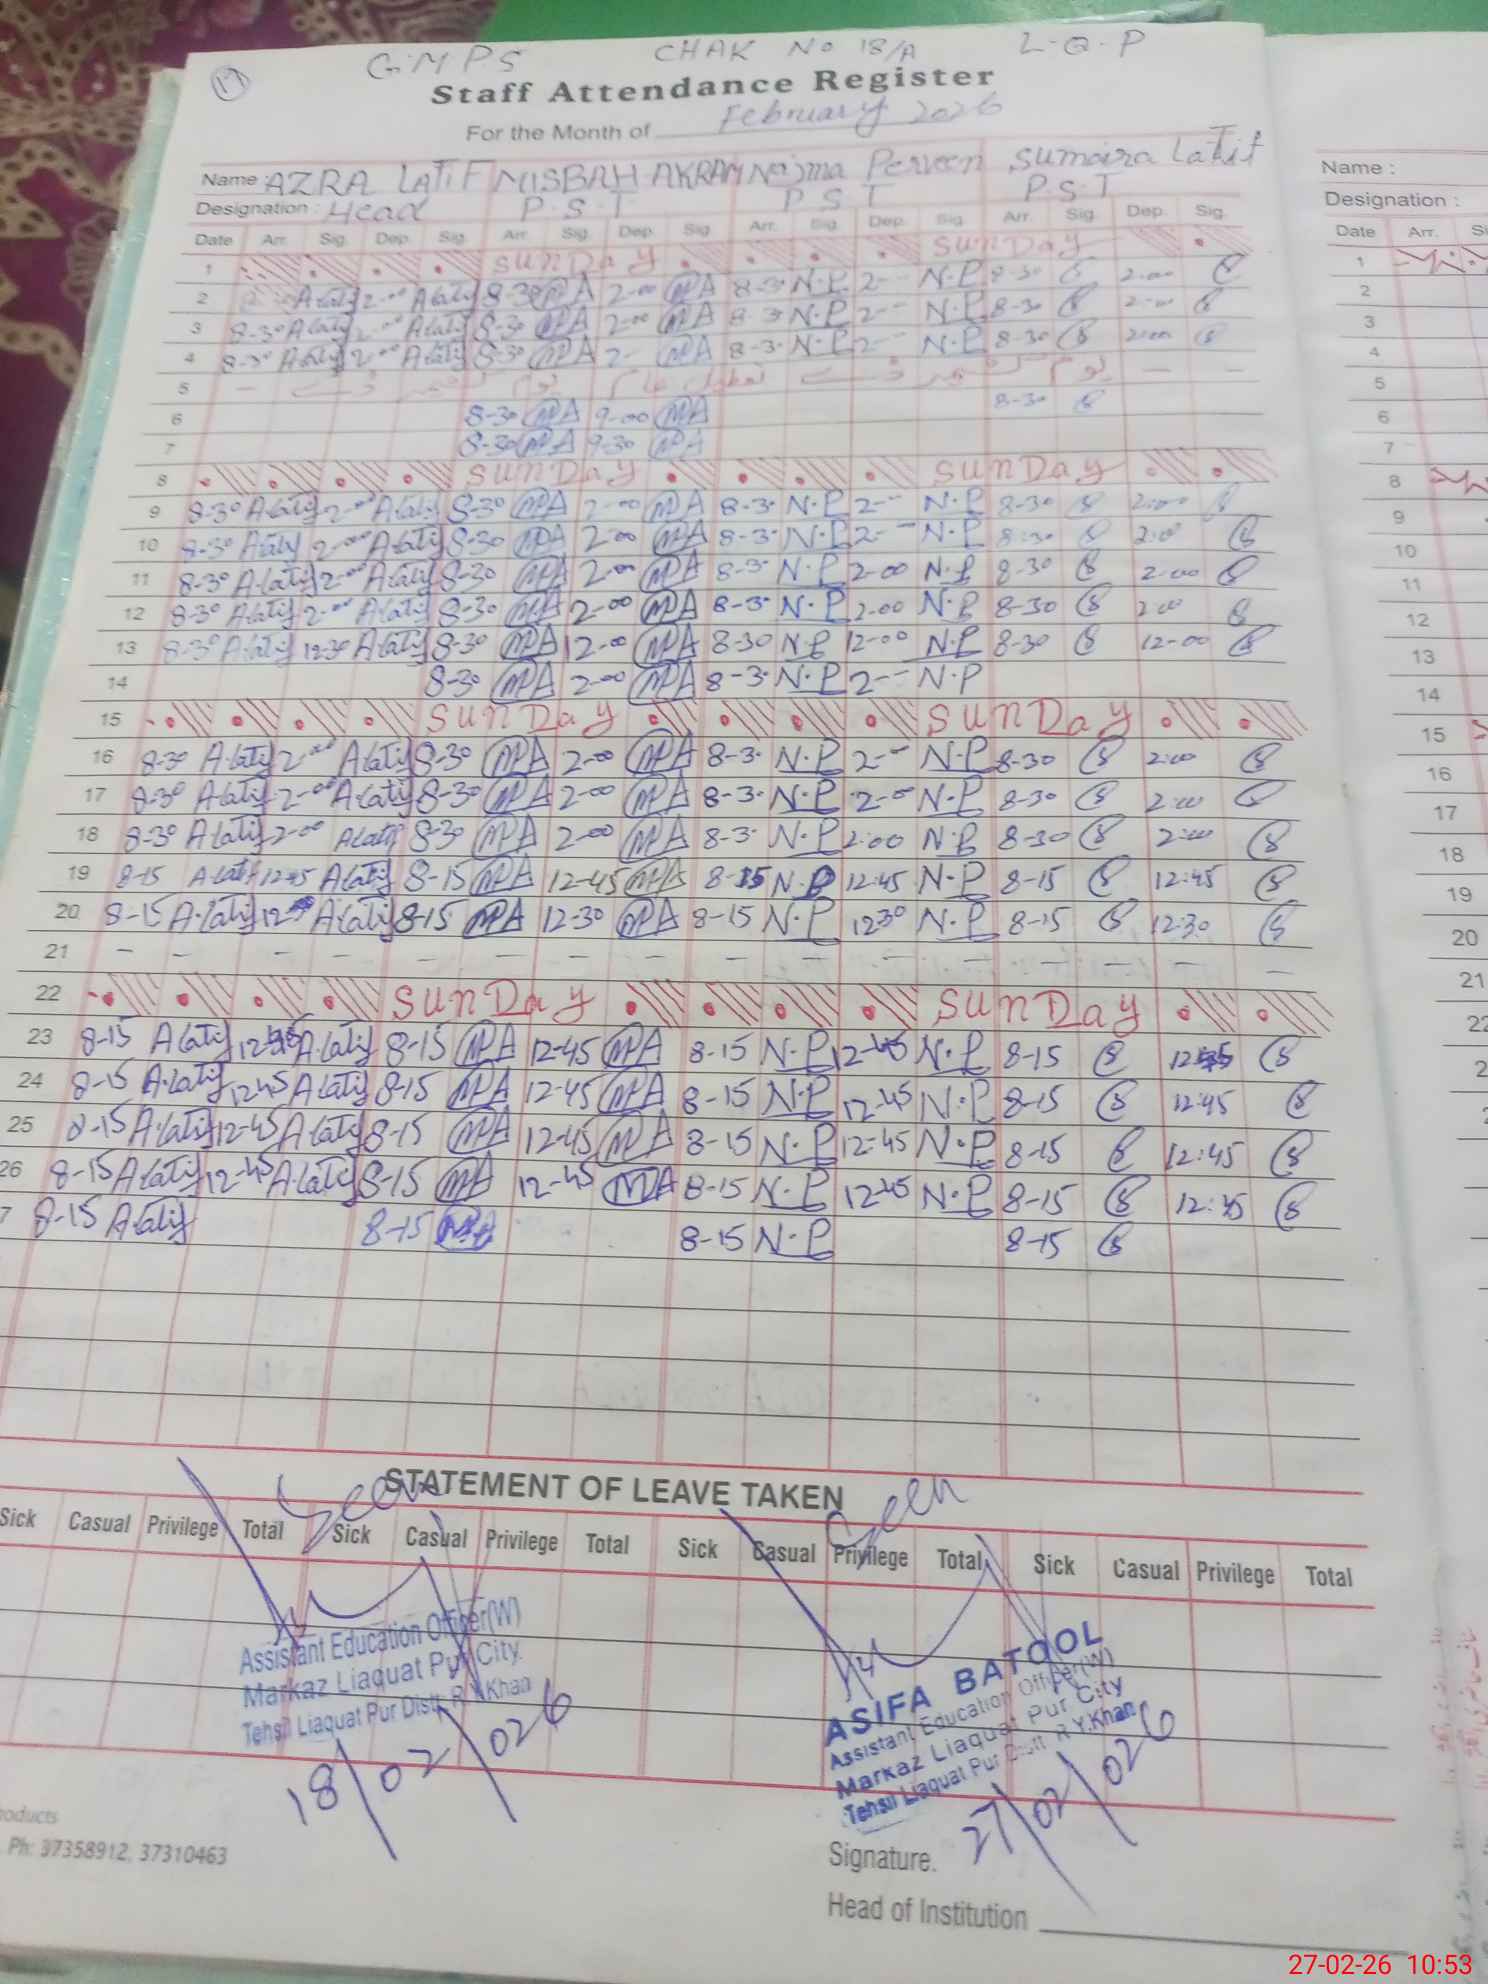 17
G.M.P.S CHAK No 18/A L.Q.P
Staff Attendance Register
For the Month of February 2026
Name AZRA LATIF MISBAH AKRAM Najma Perveen Sumaira Latif
Designation : Head P.S.T P S T P.S.T
Date Arr. Sig. Dep. Sig. Arr. Sig. Dep. Sig. Arr. Sig. Dep. Sig. Arr. Sig. Dep. Sig.
1 SUNDAY SUNDAY
2 A.Latif 2-00 A.Latif 8-30 MA 2-00 MA 8-3. N.P 2-- N.P 8-30 S 2:00 S
3 8-30 A.Latif 2-00 A.Latif 8-30 MA 2-00 MA 8-3. N.P 2-- N.P 8-30 S 2:00 S
4 8-30 A.Latif 2-00 A.Latif 8-30 MA 2- MA 8-3. N.P 2-- N.P 8-30 S 2:00 S
5 - - -
6 8-30 MA 9-00 MA 8-30 S
7 8-30 MA 9-30 MA
8 SUNDAY SUNDAY
9 8-30 A.Latif 2-00 A.Latif 8-30 MA 2-00 MA 8-3. N.P 2-- N.P 8-30 S 2:00 S
10 8-30 A.Latif 2-00 A.Latif 8-30 MA 2-00 MA 8-3. N.P 2-- N.P 8:30 S 2:00 S
11 8-30 A.Latif 2-00 A.Latif 8-30 MA 2-00 MA 8-3. N.P 2-00 N.P 8-30 S 2:00 S
12 8-30 A.Latif 2-00 A.Latif 8-30 MA 2-00 MA 8-3. N.P 2-00 N.P 8-30 S 2:00 S
13 8-30 A.Latif 12-30 A.Latif 8-30 MA 12-00 MA 8-30 N.P 12-00 N.P 8-30 S 12-00 S
14 8-30 MA 2-00 MA 8-3. N.P 2-- N.P
15 SUNDAY SUNDAY
16 8-30 A.Latif 2-00 A.Latif 8-30 MA 2-00 MA 8-3. N.P 2-- N.P 8-30 S 2:00 S
17 8-30 A.Latif 2-00 A.Latif 8-30 MA 2-00 MA 8-3. N.P 2-0 N.P 8-30 S 2:00 S
18 8-30 A.Latif 2-00 A.Latif 8-30 MA 2-00 MA 8-3. N.P 2:00 N.P 8-30 S 2:00 S
19 8-15 A.Latif 12-45 A.Latif 8-15 MA 12-45 MA 8-15 N.P 12:45 N.P 8-15 S 12:45 S
20 8-15 A.Latif A.Latif 8-15 MA 12-30 MA 8-15 N.P 12 30 N.P 8-15 S 12:30 S
21 - - - - - - - - - - - - - - - -
22 SUNDAY SUNDAY
23 8-15 A.Latif 12-45 A.Latif 8-15 MA 12-45 MA 8-15 N.P 12-45 N.P 8-15 S 12:45 S
24 8-15 A.Latif 12-45 A.Latif 8-15 MA 12-45 MA 8-15 N.P 12-45 N.P 8-15 S 12:45 S
25 8-15 A.Latif 12-45 A.Latif 8-15 MA 12-45 MA 8-15 N.P 12-45 N.P 8-15 S 12:45 S
26 8-15 A.Latif 12-45 A.Latif 8-15 MA 12-45 MA 8-15 N.P 12-45 N.P 8-15 S 12:45 S
7 8-15 A.Latif 8-15 MA 8-15 N.P 8-15 S
STATEMENT OF LEAVE TAKEN
Seen Seen
Sick Casual Privilege Total Sick Casual Privilege Total Sick Casual Privilege Total Sick Casual Privilege Total
Assistant Education Officer(W)
Markaz Liaquat Pur City
Tehsil Liaquat Pur Distt R.Y.Khan
18/02/026
ASIFA BATOOL
Assistant Education Officer(W)
Markaz Liaquat Pur City
Tehsil Liaquat Pur Distt R.Y.Khan
27/02/026
roducts
Ph: 37358912, 37310463
Signature.
Head of Institution
Name :
Designation :
Date Arr.
1
2
3
4
5
6
7
8
9
10
11
12
13
14
15
16
17
18
19
20
21
22
27-02-26 10:53